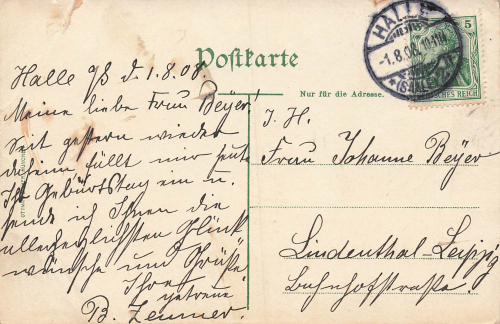 Postkarte
Nur für die Adresse.
HALLE
-1.8.08.
(SAALE)
5
DEUTSCHES REICH
Halle a/S d. 1.8.08.
Meine liebe Frau Beyer!
Seit gestern wieder
daheim, fällt mir heute
Ihr Geburtstag ein u.
sende ich Ihnen die
allerherzlichsten Glück
wünsche und Grüße
Ihre
getreue
B. Zenner.
I. H.
Frau Johanne Beyer
Lindenthal-Leipzig
Bahnhofstraße.